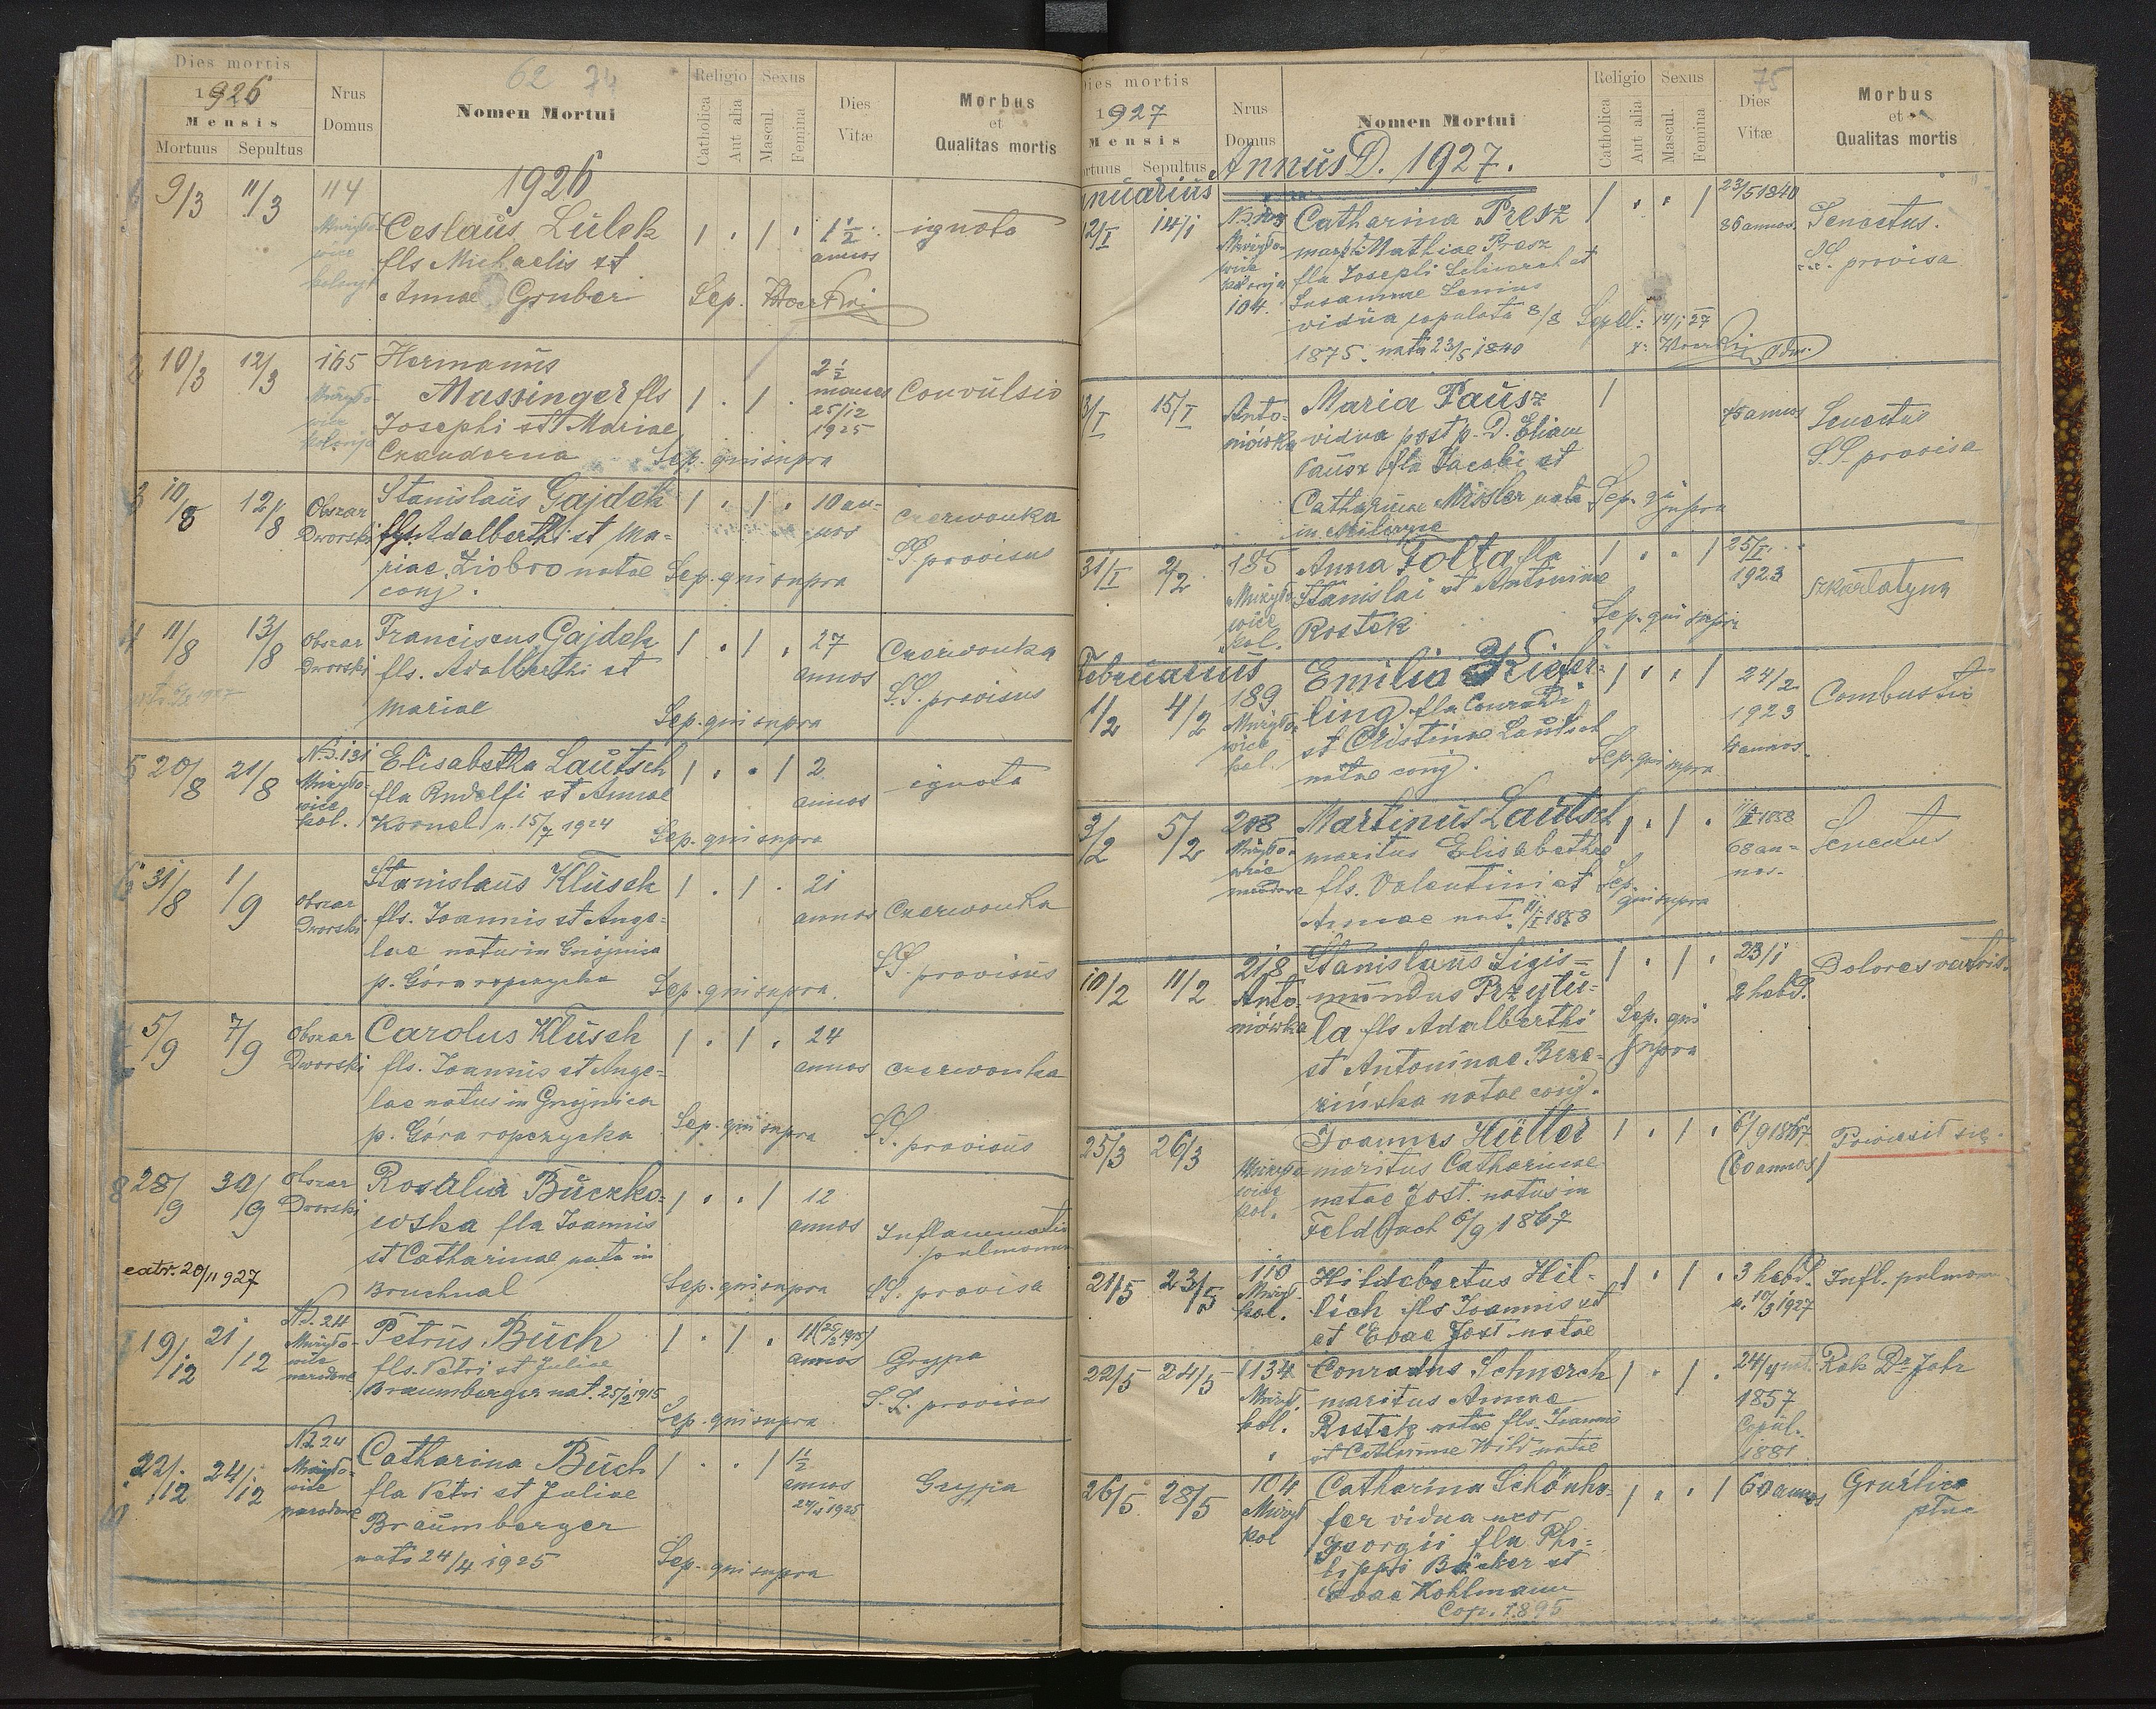 Dies mortis
1926
Mensis
Mortuus Sepultus
Nrus
Domus
62 74
Nomen Mortui
Religio
Catholica
Aut alia
Sexus
Mascul.
Femina
Dies
Vitæ
Morbus
et
Qualitas mortis
1926
9/3 11/3 114
Ceslaus Lulek
fls Michaelis et
Annae Gruber
1 . 1 .
1 1/2
annos
ignota
Sep.
2 10/3 12/3 165
Hermanus
Massinger fls
Josephi et Mariae
Czanderna
1 . 1 .
2 1/2
menses
25/12
1925
Convulsio
Sep. qui supra
3 10/8 12/8 Obszar
Dworski
Stanislaus Gajdek
fls Adalberthi et Ma-
riae Ziobro natae
conj.
1 . 1 .
10 an-
nos
Czerwonka
SS. provisus
Sep. qui supra
4 11/8 13/8 Obszar
Dworski
Franciscus Gajdek
fls. Adalberthi et
Mariae
1 . 1 .
27
annos
Czerwonka
S.S. provisus
Sep. qui supra
5 20/8 21/8 No. 131
kol.
Elisabetha Lautsch
fla Rudolfi et Annae
Kornel n. 15/7 1924
1 . . 1
2
annos
ignota
Sep. qui supra
6 31/8 1/9 obszar
Dworski
Stanislaus Klusek
fls. Joannis et Ange-
lae natus in Gnojnica
p. Góra ropczycka
1 . 1 .
21
annos
Czerwonka
SS. provisus
Sep. qui supra.
5/9 7/9 Obszar
Dworski
Carolus Klusek
fls. Joannis et Ange-
lae natus in Gnojnica
p. Góra ropczycka
1 . 1 .
24
annos
czerwonka
SS. provisus
Sep. qui supra
8 28/9 30/9 Obszar
Dworski
Rosalia Buczko-
wska fla Joannis
et Catharinae nata in
Bruchnal
1 . . 1
12
annos
Inflammatio
pulmonum
SS. provisa
Sep. qui supra
extr. 20/11 927
19/12 21/12 No. 24
narodowe
Petrus Buch
fls. Petri et Juliae
Braumberger nat. 25/2 1915
1 . 1 .
11 (25/2 1915)
annos
Grypa
S.S. provisus
Sep. qui supra
10 22/12 24/12 No 24
narodowe
Catharina Buch
fla Petri et Juliae
Braumberger
nata 24/4 1925
1 . . 1
1 1/2
annos
24/4 1925
Grypa
Sep. qui supra
Dies mortis
1927
Mensis
Mortuus Sepultus
Nrus
Domus
Nomen Mortui
Religio
Catholica
Aut alia
Sexus
Mascul.
Femina
75
Dies
Vitæ
Morbus
et
Qualitas mortis
Annus D. 1927.
Januarius
12/I 14/I
104.
Catharina Presz
Mathiae Presz
fla Josephi Schwerch et
Susannae Senius
vidua copulata 8/8
1875. nata 23/5 1840
1 . . 1
23/5 1840
86 annos.
Senectus.
SS. provisa
Sepel: 14/1 27
13/I 15/I Anto-
niówka
Maria Pausz
vidua post p. D. Eliam
Pausz fla Jacobi et
Catharinae Missler nata
in
1
75 annos
Senectus
S.S. provisa
Sep. qui supra
31/I 2/2 185
kol.
Anna Tołta fla
Stanislai et Antoninae
Rostek
1 . . 1
25/I
1923
szkarlatyna
Sep. qui supra
Februarius
1/2 4/2 189
kol.
Emilia Kiefer-
ling fla Conradi
et Cristinae Lautsch
natae conj.
1 . . 1
24/2
1923
4 annos
Combustio
Sep. qui supra
3/2 5/2 208
Martinus Lautsch
maritus Elisabethae
fls. Valentini et
Annae nat. 11/I 1858
1 . 1 .
11/I 1858
68 an-
nos.
Senectus
Sep. qui supra
10/2 11/2 218
Anto-
niówka
Stanislaus Sigis-
mundus Przytu-
ła fls Adalberthi
et Antoninae Brze-
zińska natae conj.
1 . 1 .
23/1
2 hebd.
Dolores
Sep. qui
supra
25/3 26/3
kol.
Joannes Hütter
maritus Catharinae
natae Jost. natus in
Feldbach 6/9 1867
1 . 1 .
6/9 1867
(60 annos)
Powiesił się.
21/5 23/5 110
kol.
Hildebertus Hil-
lich fls Joannis et
et Evae Jost natae
1 . 1 .
3 hebd.
n. 10/3 1927
Infl. pulmonum
22/5 24/5 134
kol.
Conradus Schwerch
maritus Annae
Rostek natae fls. Joannis
et Catharinae Wild natae
1 . 1 .
24/4
1857
Copul.
1881
Rak Dr Jahr
26/5 28/5 104
kol
Catharina Schönho-
fer vidua uxor
Georgii fla Phi-
lippi Bäcker et
Evae Kohlmann
Cop. 1895
1 . . 1
60 annos
Gruźlica
płuc